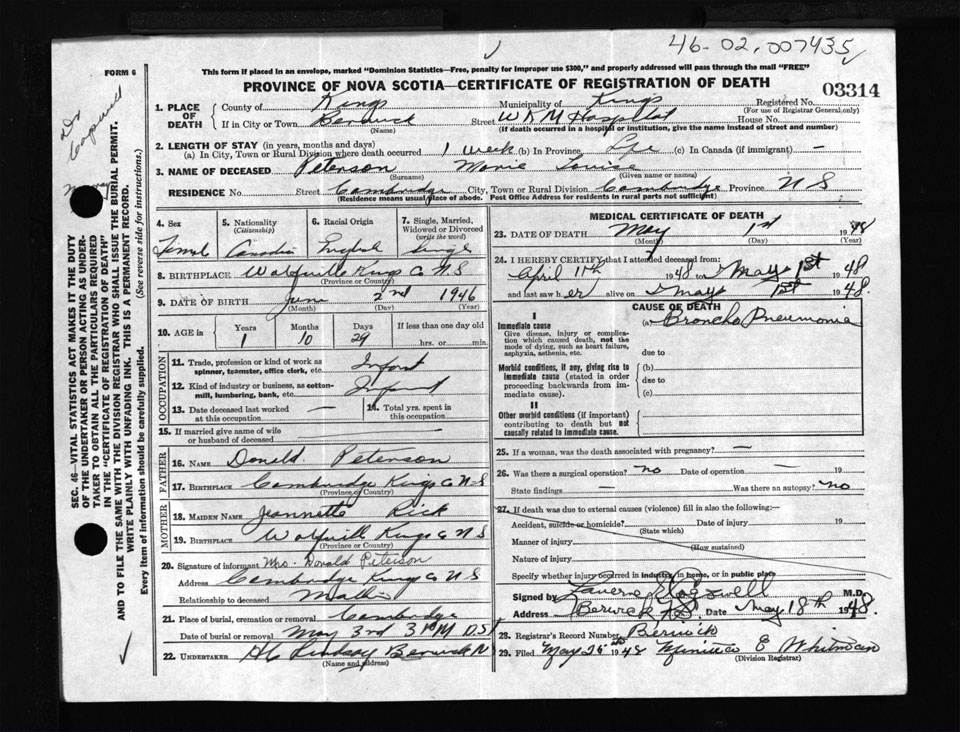 46-02.007435
FORM 6
This form if placed in an envelope, marked "Dominion Statistics—Free, penalty for improper use $300," and properly addressed will pass through the mail "FREE"
PROVINCE OF NOVA SCOTIA—CERTIFICATE OF REGISTRATION OF DEATH
03314
1. PLACE OF DEATH
County of Kings Municipality of Kings Registered No.
(For use of Registrar General only)
If in City or Town Berwick Street W K M Hospital House No.
(Name) (If death occurred in a hospital or institution, give the name instead of street and number)
2. LENGTH OF STAY (in years, months and days)
(a) In City, Town or Rural Division where death occurred 1 week (b) In Province Life (c) In Canada (if immigrant) —
3. NAME OF DECEASED Peterson Marie Louise
(Surname) (Given name or names)
RESIDENCE No. Street Cambridge City, Town or Rural Division Cambridge Province N S
(Residence means usual place of abode. Post Office Address for residents in rural parts not sufficient)
4. Sex 5. Nationality (Citizenship) 6. Racial Origin 7. Single, Married, Widowed or Divorced (write the word)
Single
8. BIRTHPLACE Wolfville Kings Co N S
(Province or Country)
9. DATE OF BIRTH June 2nd 1946
(Month) (Day) (Year)
10. AGE in Years Months Days If less than one day old
1 10 29 hrs. or min.
OCCUPATION
11. Trade, profession or kind of work as spinner, teamster, office clerk, etc. Infant
12. Kind of industry or business, as cotton-mill, lumbering, bank, etc. Infant
13. Date deceased last worked at this occupation — 14. Total yrs. spent in this occupation
15. If married give name of wife or husband of deceased —
FATHER
16. NAME Donald Peterson
17. BIRTHPLACE Cambridge Kings Co N S
(Province or Country)
MOTHER
18. MAIDEN NAME Jeannette Rick
19. BIRTHPLACE Wolfville Kings Co N S
(Province or Country)
20. Signature of informant Mrs. Donald Peterson
Address Cambridge Kings Co N S
Relationship to deceased Mother
21. Place of burial, cremation or removal Cambridge
Date of burial or removal May 3rd 3 PM D.S.T
22. UNDERTAKER H C Lindsay Berwick N
(Name and address)
MEDICAL CERTIFICATE OF DEATH
23. DATE OF DEATH May 1st 1948
(Month) (Day) (Year)
24. I HEREBY CERTIFY that I attended deceased from:
April 11th 1948 to May 1st 1948
and last saw her alive on May 1st 1948.
CAUSE OF DEATH
I
Immediate cause (a) Broncho Pneumonia
Give disease, injury or complication which caused death, not the mode of dying, such as heart failure, asphyxia, asthenia, etc.
due to
Morbid conditions, if any, giving rise to immediate cause (stated in order proceeding backwards from immediate cause).
(b)
due to
(c)
II
Other morbid conditions (if important) contributing to death but not causally related to immediate cause.
25. If a woman, was the death associated with pregnancy? —
26. Was there a surgical operation? no Date of operation — 19
State findings — Was there an autopsy? no
27. If death was due to external causes (violence) fill in also the following:—
Accident, suicide or homicide? Date of injury 19
(State which)
Manner of injury
(How sustained)
Nature of injury
Specify whether injury occurred in industry, in home, or in public place
Signed by M.D.
Address Berwick N S Date May 18th 1948.
28. Registrar's Record Number Berwick
29. Filed May 26th 1948 E Whitman
(Division Registrar)
SEC. 46—VITAL STATISTICS ACT MAKES IT THE DUTY
OF THE UNDERTAKER OR PERSON ACTING AS UNDER-
TAKER TO OBTAIN ALL THE PARTICULARS REQUIRED
IN THE "CERTIFICATE OF REGISTRATION OF DEATH"
AND TO FILE THE SAME WITH THE DIVISION REGISTRAR WHO SHALL ISSUE THE BURIAL PERMIT.
WRITE PLAINLY WITH UNFADING INK. THIS IS A PERMANENT RECORD.
Every item of information should be carefully supplied. (See reverse side for instructions.)